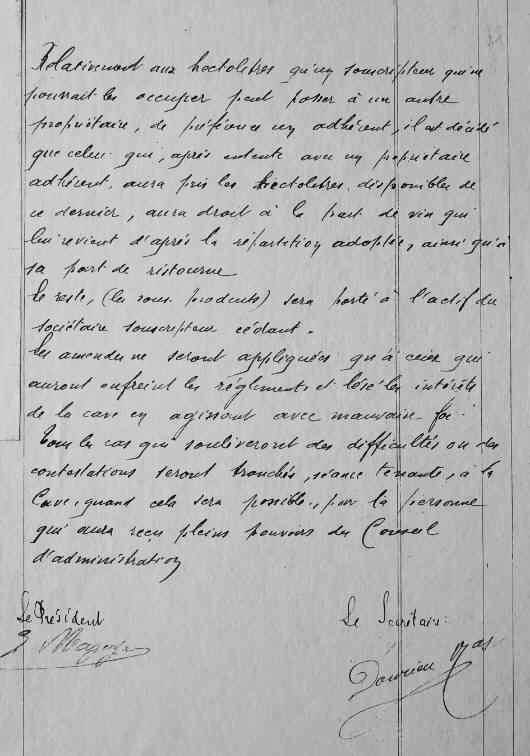 Relativement aux hectolitres qu'un souscripteur qui ne
pourrait les occuper peut passer à un autre
propriétaire, de préférence un adhérent, il est décidé
que celui qui, après entente avec un propriétaire
adhérent, aura pris les hectolitres disponibles de
ce dernier, aura droit à la part de vin qui
lui revient d'après la répartition adoptée, ainsi qu'à
sa part de ristourne
Le reste, (les sous produits) sera porté à l'actif du
sociétaire souscripteur cédant.
Les amendes ne seront appliquées qu'à ceux qui
auront enfreint les règlements et lésé les intérêts
de la cave en agissant avec mauvaise foi.
Tous les cas qui soulèveront des difficultés ou des
contestations seront tranchés, séance tenante, à la
Cave, quand cela sera possible, par la personne
qui aura reçu pleins pouvoirs du Conseil
d'administration
Le Président
Le Secrétaire: